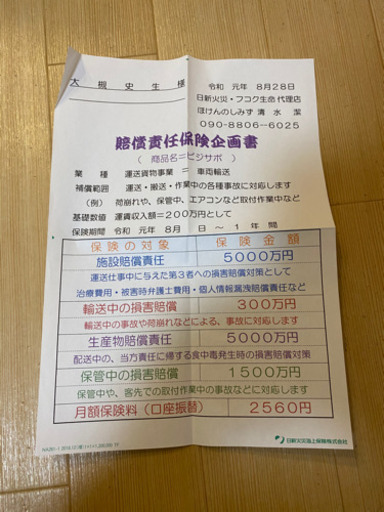 大槻史生様
令和 元年 8月28日
日新火災・フコク生命 代理店
ほけんのしみず 清水 潔
090-8806-6025
賠償責任保険企画書
( 商品名=ビジサポ )
業種 運送貨物事業 = 車両輸送
補償範囲 運送・搬送・作業中の各種事故に対応します
(例) 荷崩れや、保管中、エアコンなど取付作業中など
基礎数値 運賃収入額=200万円として
保険期間 令和 元年 8月 日 ~ 1年間
保険の対象 保険金額
施設賠償責任 5000万円
運送仕事中に与えた第3者への損害賠償対策として
治療費用・被害時弁護士費用・個人情報漏洩賠償責任など
輸送中の損害賠償 300万円
輸送中の事故や荷崩れなどによる、事故に対応します
生産物賠償責任 5000万円
配送中の、当方責任に帰する食中毒発生時の損害賠償対策
保管中の損害賠償 1500万円
保管中や、客先での取付作業中の事故に対応します
月額保険料(口座振替) 2560円
日新火災海上保険株式会社